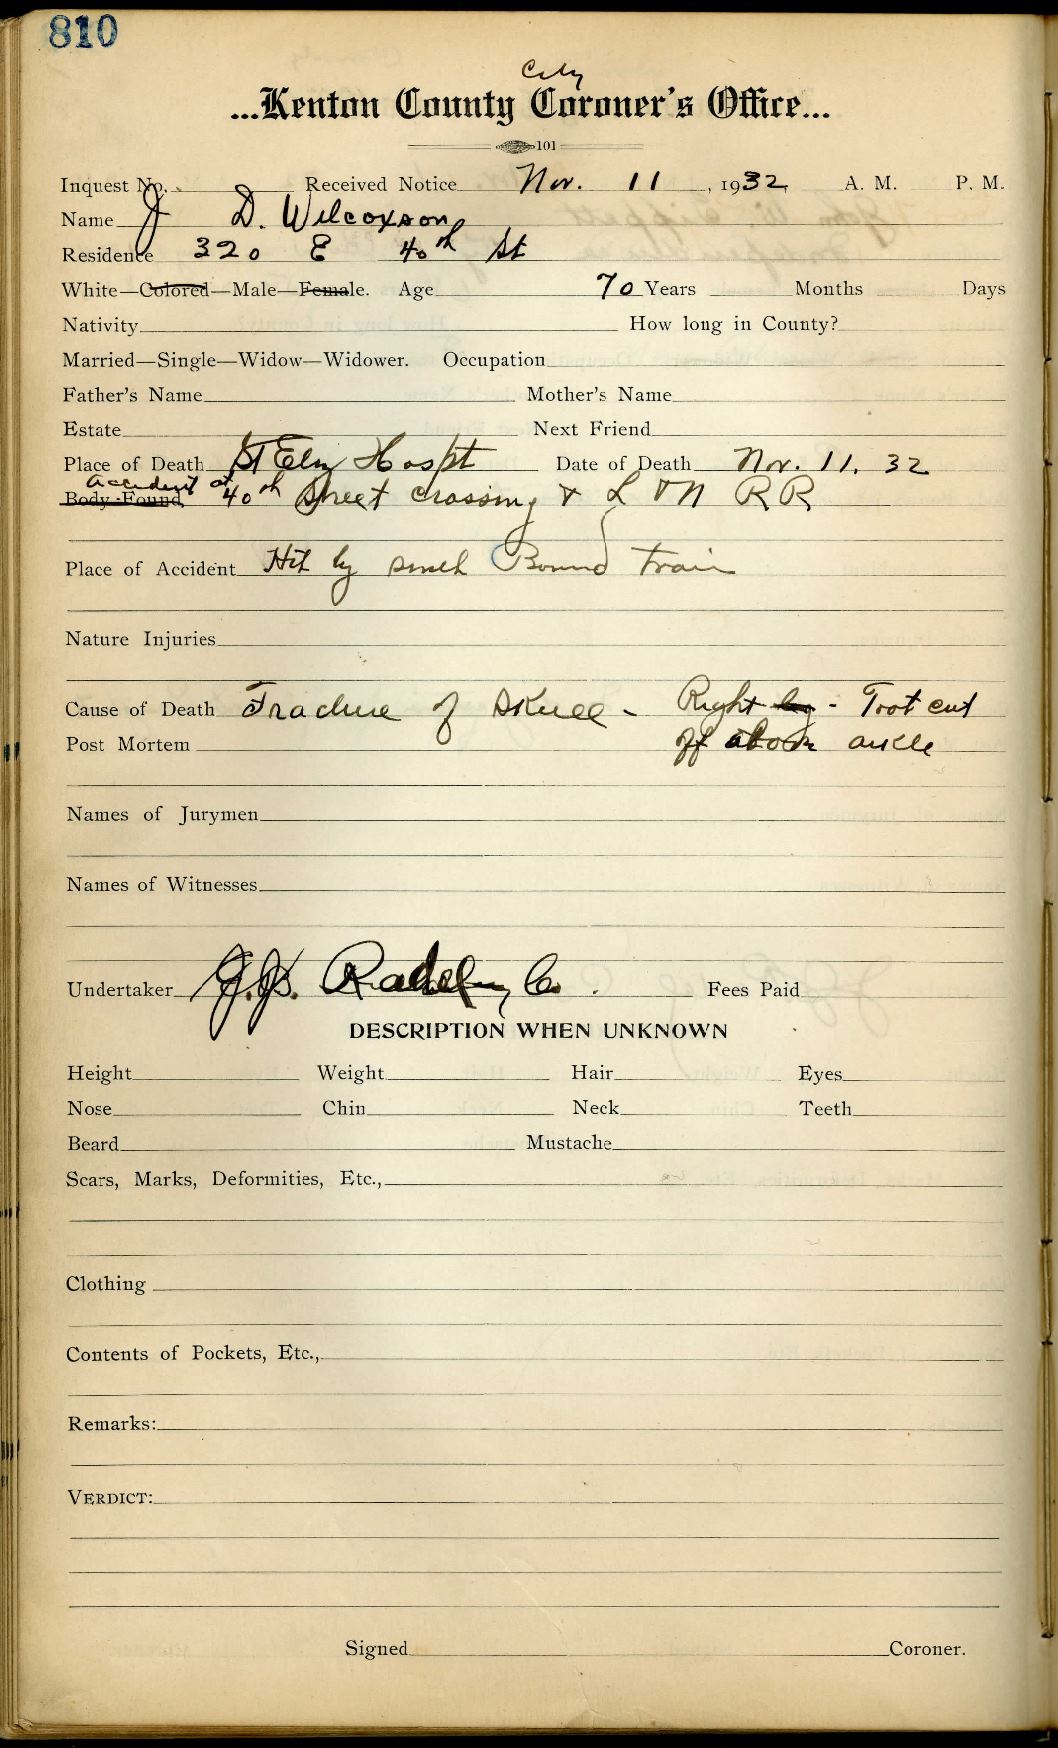 810
City
...Kenton County Coroner's Office...
101
Inquest No. Received Notice Nov. 11, 1932, A. M. P. M.
Name J D. Wilcoxson
Residence 320 E 40th St
White—Colored—Male—Female. Age 70 Years Months Days
Nativity How long in County?
Married—Single—Widow—Widower. Occupation
Father's Name Mother's Name
Estate Next Friend
Place of Death St Eliz Hospt Date of Death Nov. 11. 32
accident at
Body Found 40th Street crossing & L & N RR
Place of Accident Hit by south Bound train
Nature Injuries
Cause of Death Fracture of Skull - Right leg - Foot cut
Post Mortem off above ankle
Names of Jurymen
Names of Witnesses
Undertaker J.J. Co. Fees Paid
DESCRIPTION WHEN UNKNOWN
Height Weight Hair Eyes
Nose Chin Neck Teeth
Beard Mustache
Scars, Marks, Deformities, Etc.,
Clothing
Contents of Pockets, Etc.,
Remarks:
VERDICT:
Signed Coroner.